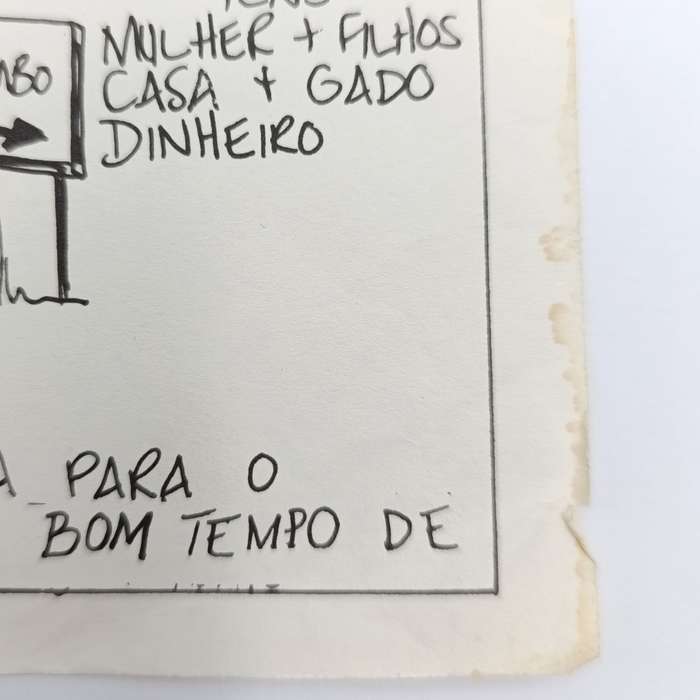 TENS
MULHER + FILHOS
CASA + GADO
DINHEIRO
PARA O
BOM TEMPO DE